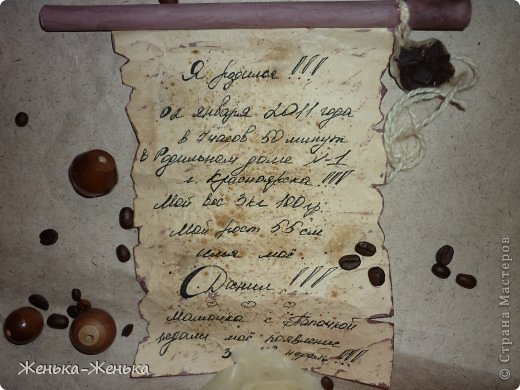 Я родился !!!
02 января 2011 года
в 7 часов 50 минут
в Родильном доме №-1
г. Красноярска !!!
Мой вес 3 кг 100 гр.
Мой рост 55 см
имя моё
Даниил !!!
Мамочка с Папочкой
ждали моё появление
3 недель !!!
Женька-Женька
© Страна Мастеров